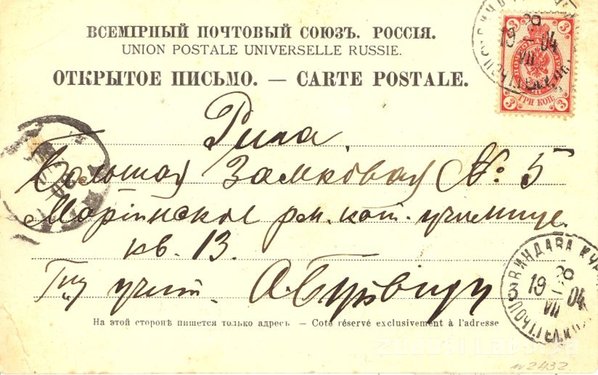 ВСЕМІРНЫЙ ПОЧТОВЫЙ СОЮЗЪ. РОССІЯ.
UNION POSTALE UNIVERSELLE RUSSIE.
ОТКРЫТОЕ ПИСЬМО. — CARTE POSTALE.
3 3
ТРИ КОП.
19 28 04
VII
Рига
Большая Замковая № 5
Маріинское рем. кат. училище
кв. 13.
учит.
ВИНДАВА КУР
19 28 04
VII
На этой сторонѣ пишется только адресъ — Coté réservé exclusivement à l'adresse
№2432